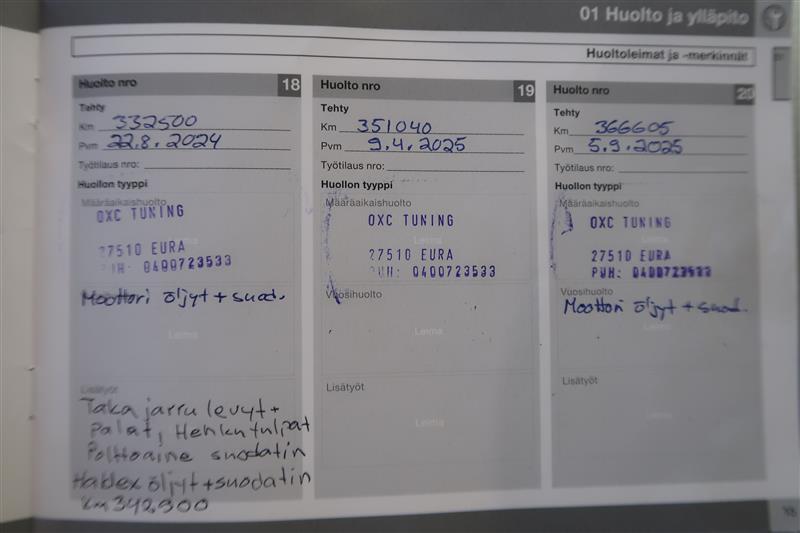 01 Huolto ja ylläpito
Huoltoleimat ja -merkinnät
Huolto nro 18
Tehty
Km 332500
Pvm 22.8.2024
Työtilaus nro:
Huollon tyyppi
Määräaikaishuolto
OXC TUNING
27510 EURA
PUH: 0400723533
Moottori öljyt + suod.
Leima
Lisätyöt
Taka jarru levyt +
Palat, Hehkutulpat
Polttoaine suodatin
Haldex öljyt + suodatin
Km 342.900
Huolto nro 19
Tehty
Km 351040
Pvm 9.4.2025
Työtilaus nro:
Huollon tyyppi
Määräaikaishuolto
OXC TUNING
Leima
27510 EURA
PUH: 0400723533
Vuosihuolto
Leima
Lisätyöt
Leima
Huolto nro 20
Tehty
Km 366605
Pvm 5.9.2025
Työtilaus nro:
Huollon tyyppi
Määräaikaishuolto
OXC TUNING
Leima
27510 EURA
PUH: 0400723533
Vuosihuolto
Moottori öljyt + suod.
Leima
Lisätyöt
Leima